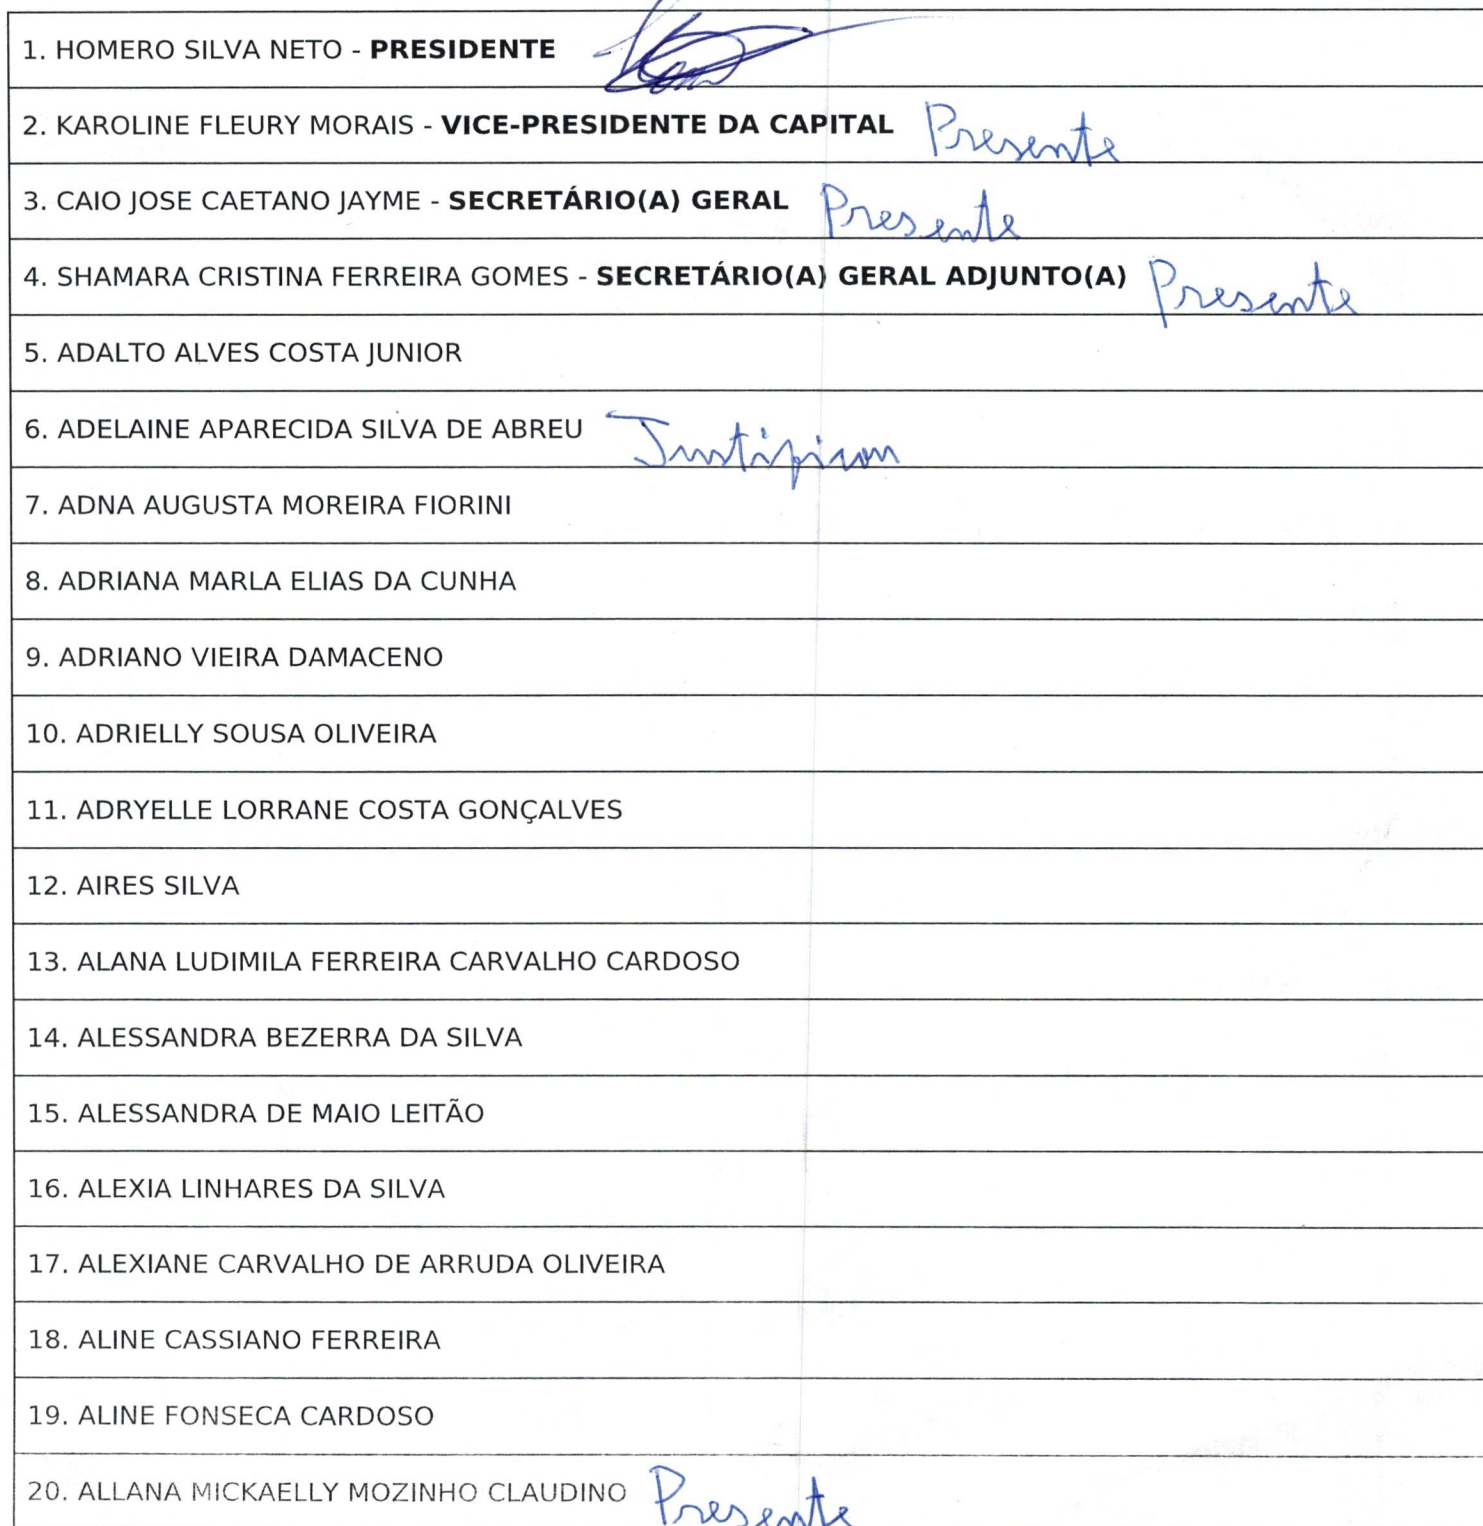 1. HOMERO SILVA NETO - PRESIDENTE
2. KAROLINE FLEURY MORAIS - VICE-PRESIDENTE DA CAPITAL Presente
3. CAIO JOSE CAETANO JAYME - SECRETÁRIO(A) GERAL Presente
4. SHAMARA CRISTINA FERREIRA GOMES - SECRETÁRIO(A) GERAL ADJUNTO(A) Presente
5. ADALTO ALVES COSTA JUNIOR
6. ADELAINE APARECIDA SILVA DE ABREU Justificou
7. ADNA AUGUSTA MOREIRA FIORINI
8. ADRIANA MARLA ELIAS DA CUNHA
9. ADRIANO VIEIRA DAMACENO
10. ADRIELLY SOUSA OLIVEIRA
11. ADRYELLE LORRANE COSTA GONÇALVES
12. AIRES SILVA
13. ALANA LUDIMILA FERREIRA CARVALHO CARDOSO
14. ALESSANDRA BEZERRA DA SILVA
15. ALESSANDRA DE MAIO LEITÃO
16. ALEXIA LINHARES DA SILVA
17. ALEXIANE CARVALHO DE ARRUDA OLIVEIRA
18. ALINE CASSIANO FERREIRA
19. ALINE FONSECA CARDOSO
20. ALLANA MICKAELLY MOZINHO CLAUDINO Presente